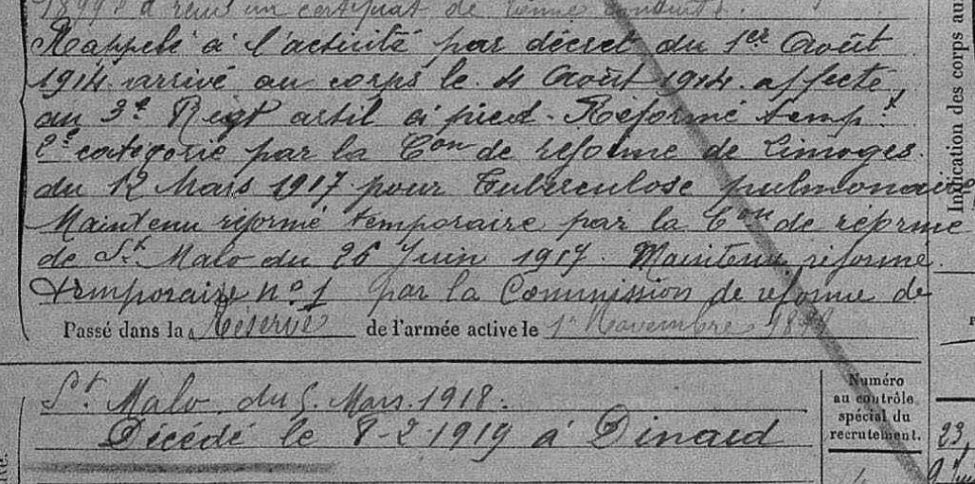 1899. a reçu un certificat de bonne conduite.
Rappelé à l'activité par décret du 1er Août
1914 arrivé au corps le 4 Août 1914. affecté
au 3e Regt artil à pied - Réformé tempre
2e catégorie par la Con de réforme de Limoges
du 12 Mars 1917 pour Tuberculose pulmonaire
Maintenu réformé temporaire par la Con de réforme
de St Malo du 26 Juin 1917. Maintenu réformé
temporaire no 1 par la Commission de réforme de
Passé dans la Réserve de l'armée active le 1er Novembre
St Malo du 5 Mars 1918.
Décédé le 8-2 1919 à Dinard
Indication des corps au
Numéro
au contrôle
spécial du
recrutement.
23,